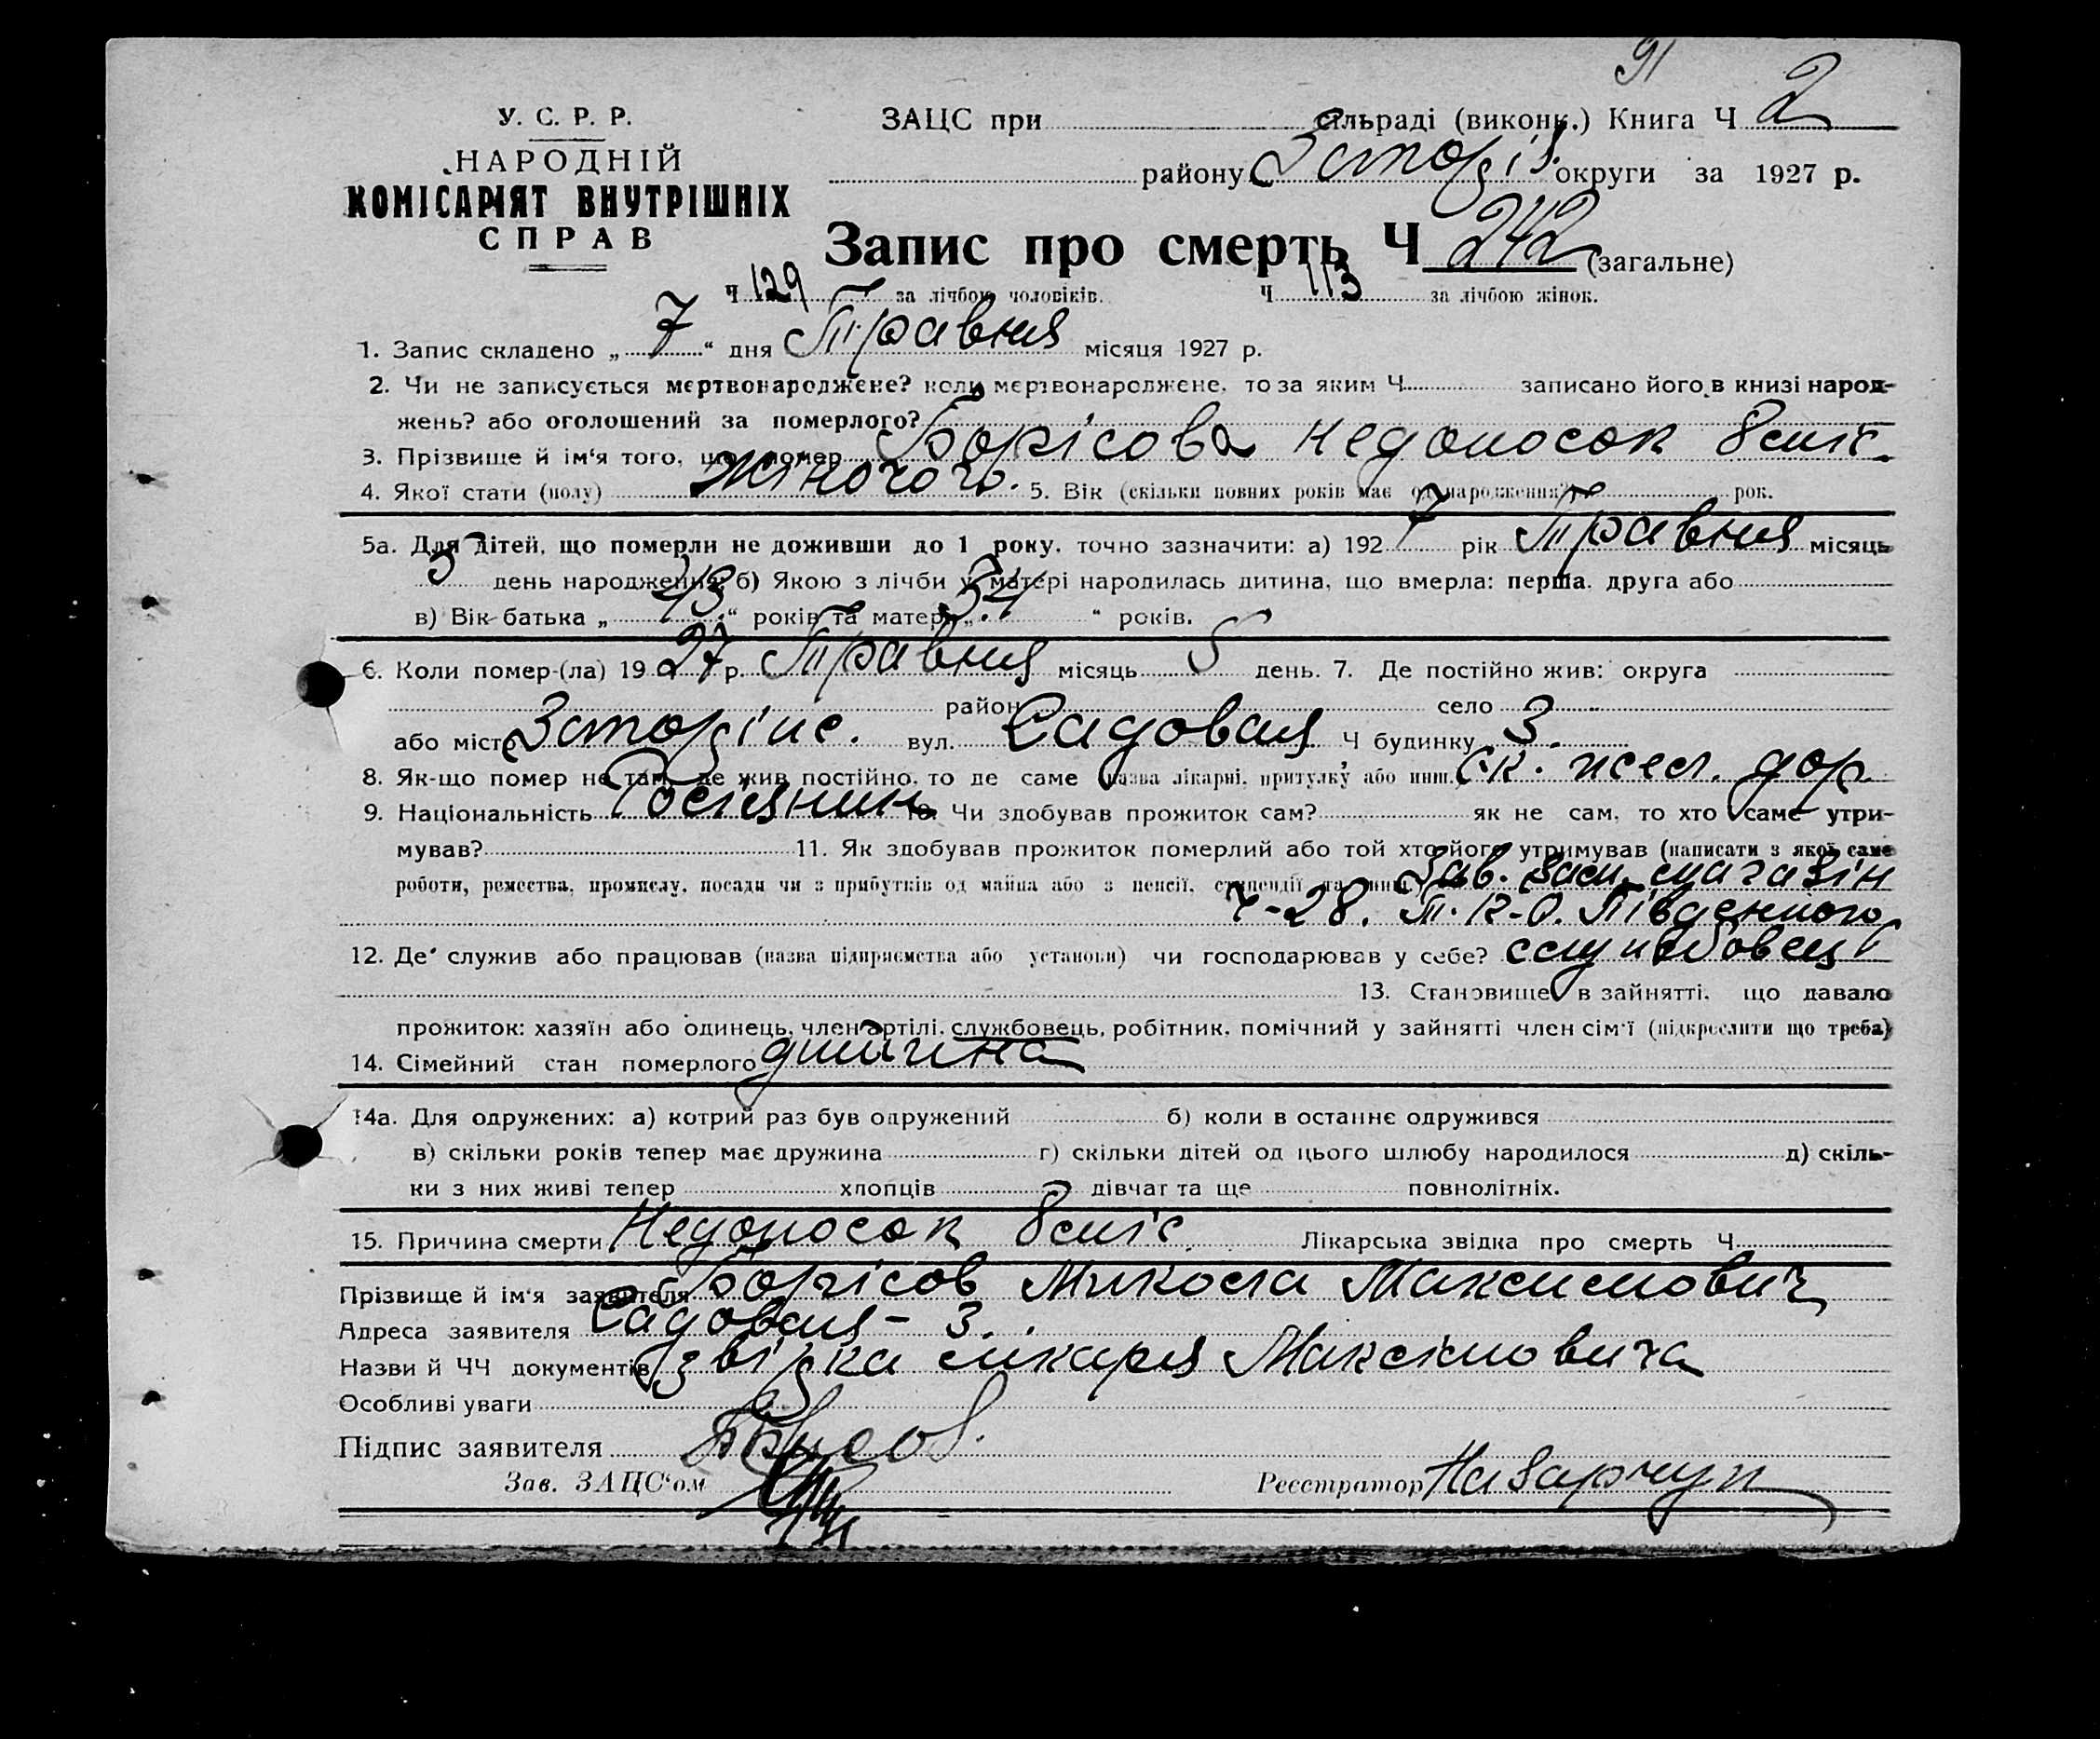 91
У. С. Р. Р.
НАРОДНІЙ
КОМІСАРІЯТ ВНУТРІШНІХ
СПРАВ
ЗАЦС при сільраді (виконк.) Книга Ч 2
району Запоріз. округи за 1927 р.
Запис про смерть Ч 242 (загальне)
Ч 129 за лічбою чоловіків. Ч 113 за лічбою жінок.
1. Запис складено „ 7 “ дня Травня місяця 1927 р.
2. Чи не записується мертвонароджене? коли мертвонароджене, то за яким Ч записано його в книзі народ-
жень? або оголошений за померлого?
3. Прізвище й ім'я того, що помер Борісова недоносок 8 міс.
4. Якої стати (полу) Жіночого. 5. Вік (скільки повних років має од народження?) рок.
5а. Для дітей, що померли не доживши до 1 року, точно зазначити: а) 192 7 рік Травня місяць
5 день народження; б) Якою з лічби у матері народилась дитина, що вмерла: перша, друга або
в) Вік батька „ 43 “ років та матері „ 34 “ років.
6. Коли помер-(ла) 19 27 р. Травня місяць 5 день. 7. Де постійно жив: округа
район село
або місто Запоріж. вул. Садовая Ч будинку 3.
8. Як-що помер не там, де жив постійно, то де саме (назва лікарні, притулку або инш.) Ск. жел. дор.
9. Національність Росіянин 10. Чи здобував прожиток сам? як не сам, то хто саме утри-
мував? 11. Як здобував прожиток померлий або той хто його утримував (написати з якої саме
роботи, ремества, промислу, посади чи з прибутків од майна або з пенсії, стипендії та инш.) Зав. магазін
Ч-28. Т. К-О. Південного
12. Де служив або працював (назва підприємства або установи) чи господарював у себе? службовець
13. Становище в зайнятті, що давало
прожиток: хазяїн або одинець, член артілі, службовець, робітник, помічний у зайнятті член сім'ї (підкреслити що треба)
14. Сімейний стан померлого дитина
14а. Для одружених: а) котрий раз був одружений б) коли в останнє одружився
в) скільки років тепер має дружина г) скільки дітей од цього шлюбу народилося д) скіль-
ки з них живі тепер хлопців дівчат та ще повнолітніх.
15. Причина смерти Недоносок 8 міс. Лікарська звідка про смерть Ч
Прізвище й ім'я заявителя Борісов Микола Максимович
Адреса заявителя Садовая - 3.
Назви й ЧЧ документів звідка лікаря Максімовича
Особливі уваги
Підпис заявителя Борісов.
Зав. ЗАЦС'ом Реєстратор Назарчук